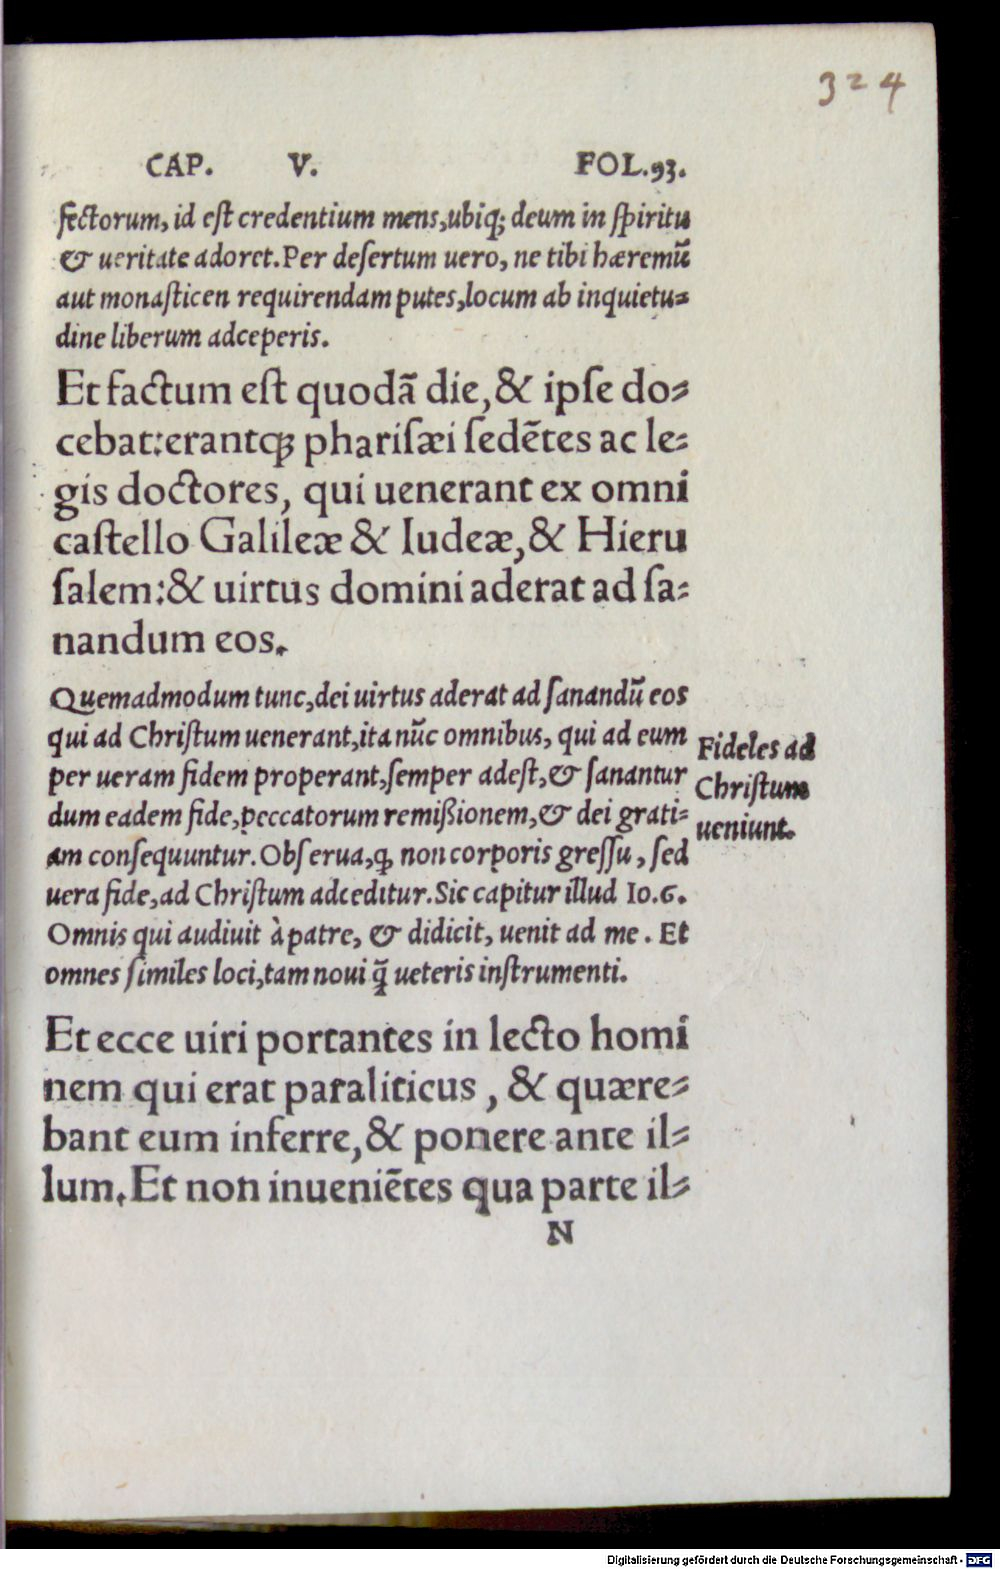 324
CAP. V. FOL.93.
fectorum, id eſt credentium mens, ubiq; deum in ſpiritu
& ueritate adoret. Per deſertum uero, ne tibi hæremũ
aut monaſticen requirendam putes, locum ab inquietu-
dine liberum adceperis.
Et factum eſt quodã die, & ipſe do-
cebat: erantq; phariſæi ſedẽtes ac le-
gis doctores, qui uenerant ex omni
caſtello Galileæ & Iudeæ, & Hieru
ſalem: & uirtus domini aderat ad ſa-
nandum eos.
Quemadmodum tunc, dei uirtus aderat ad ſanandũ eos
qui ad Chriſtum uenerant, ita nũc omnibus, qui ad eum
per ueram fidem properant, ſemper adeſt, & ſanantur
dum eadem fide, peccatorum remißionem, & dei grati-
am conſequuntur. Obſerua, ꝙ non corporis greſſu, ſed
uera fide, ad Chriſtum adceditur. Sic capitur illud Io.6.
Omnis qui audiuit à patre, & didicit, uenit ad me. Et
omnes ſimiles loci, tam noui q̃ ueteris inſtrumenti.
Fideles ad
Chriſtum
ueniunt.
Et ecce uiri portantes in lecto homi
nem qui erat paraliticus, & quære-
bant eum inferre, & ponere ante il-
lum. Et non inueniẽtes qua parte il-
N
Digitalisierung gefördert durch die Deutsche Forschungsgemeinschaft - DFG